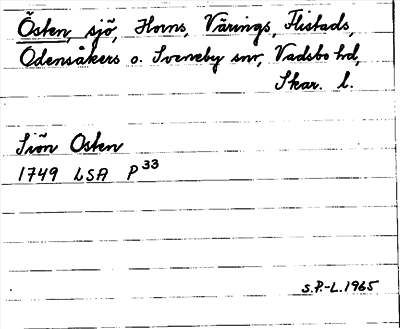 Östen, sjö, Horns, Värings, Flistads,
Odensåkers o. Sveneby snr, Vadsbo hd,
Skar. l.
Siön Osten
1749 LSA P33
S.P.-L. 1965